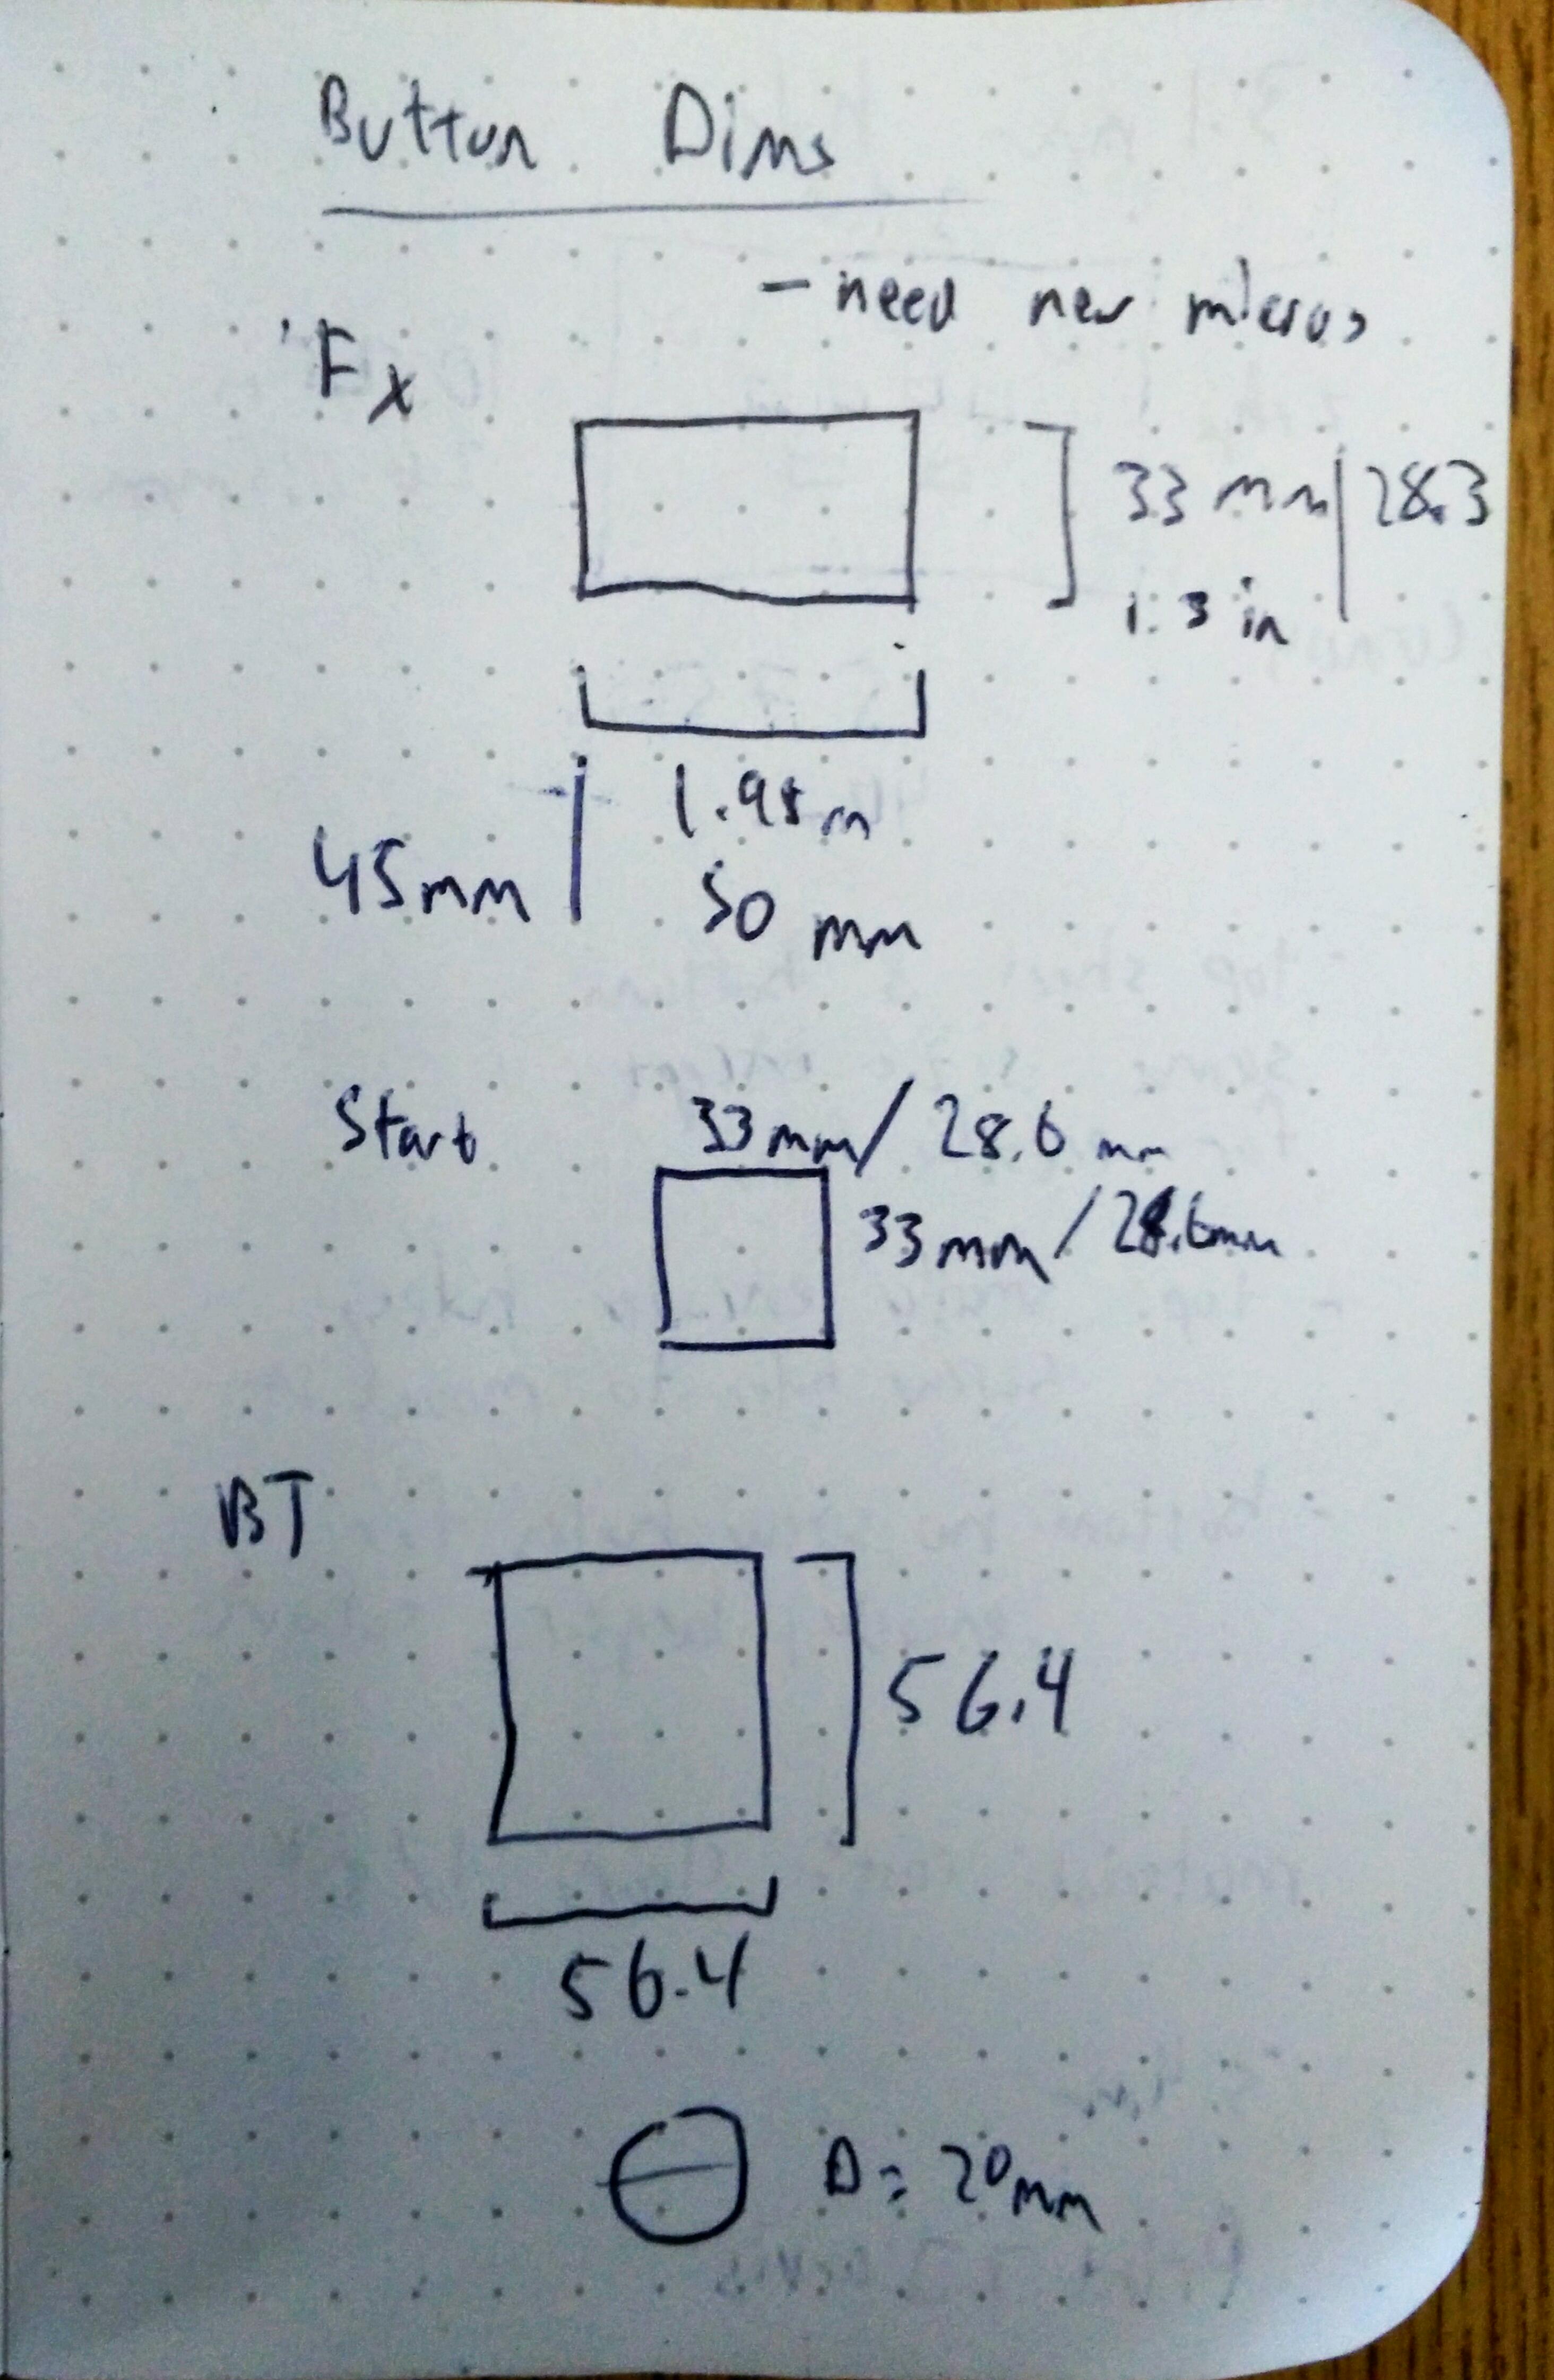 Button Dims
- need new micros
Fx
33 mm | 28.3
1.3 in
1.95 in
45mm | 50 mm
Start
33mm / 28.6 mm
33mm / 28.6mm
BT
56.4
56.4
D = 20mm